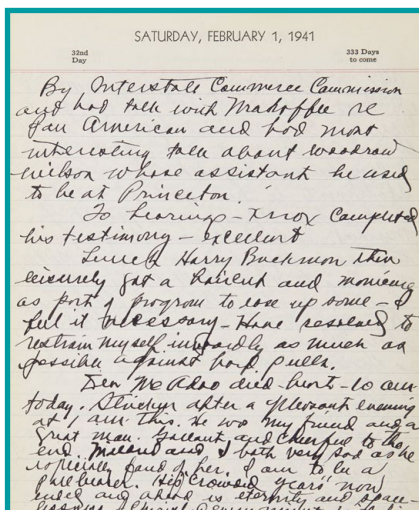 SATURDAY, FEBRUARY 1, 1941
32nd
Day
333 Days
to come
By Interstate Commerce Commission
and had talk with Mahaffie re
Pan American and had most
interesting talk about Woodrow
Wilson whose assistant he used
to be at Princeton.
To hearings - Knox completed
his testimony - excellent
Lunch Harry Buckmon then
leisurely got a haircut and manicure
as part of program to ease up some - I
feel it necessary - Have resolved to
restrain myself inwardly as much as
possible against hard pulls.
Sen. McAdoo died
today. after a pleasant evening
at 1 am this. He was my friend and a
great man. Gallant and cheerful to the
end. and I both very sad as he
fond of her. I am to be a
pallbearer. His crowded years now
ended and ahead is eternity and space -